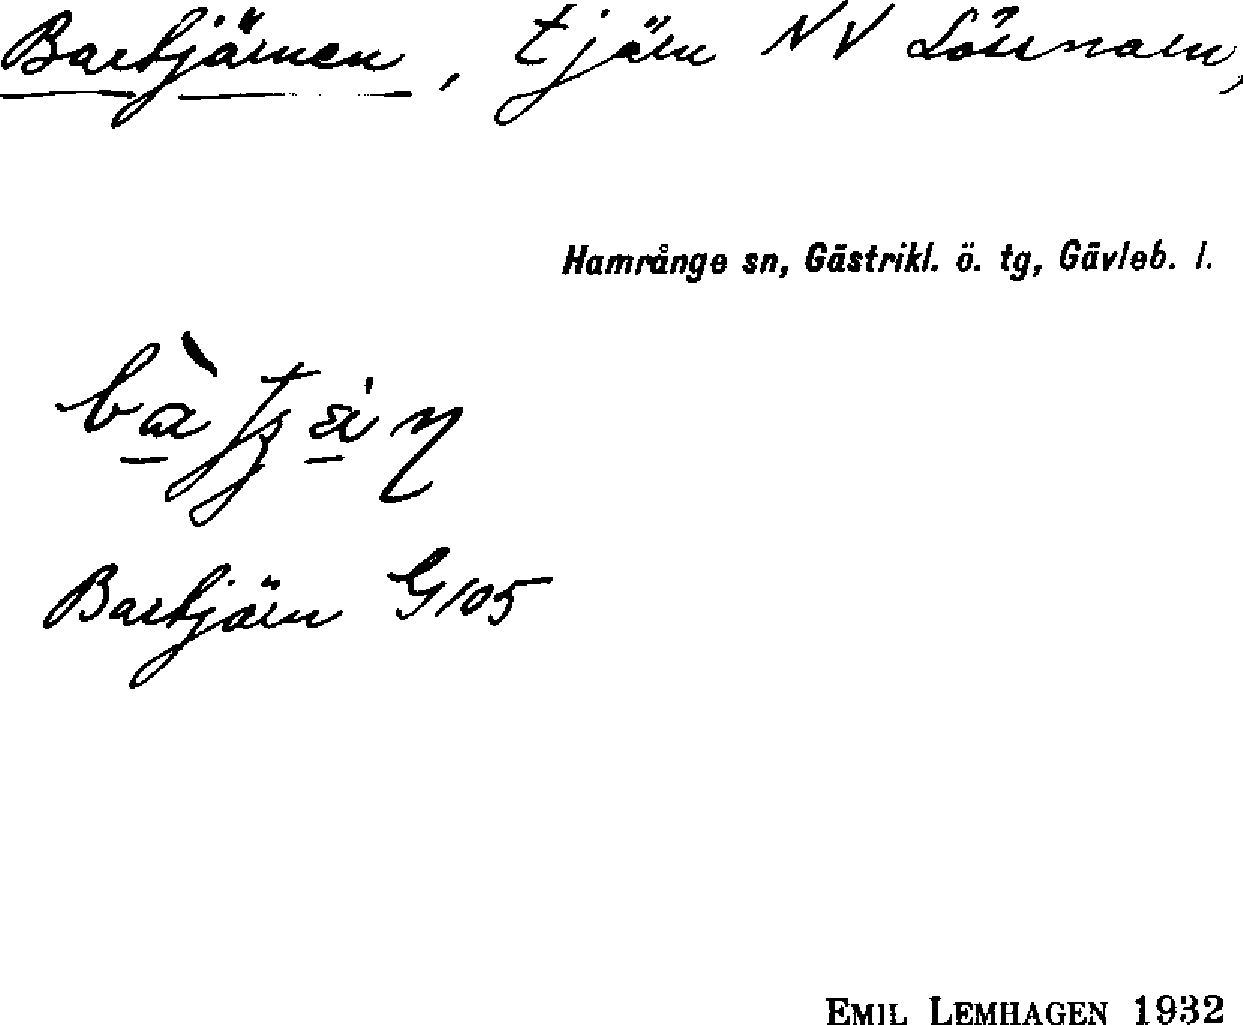 Bartjärnen, tjärn NV Lössnarn,
Hamrånge sn, Gästrikl. ö. tg, Gävleb. l.
Bartjärn G105
EMIL LEMHAGEN 1932